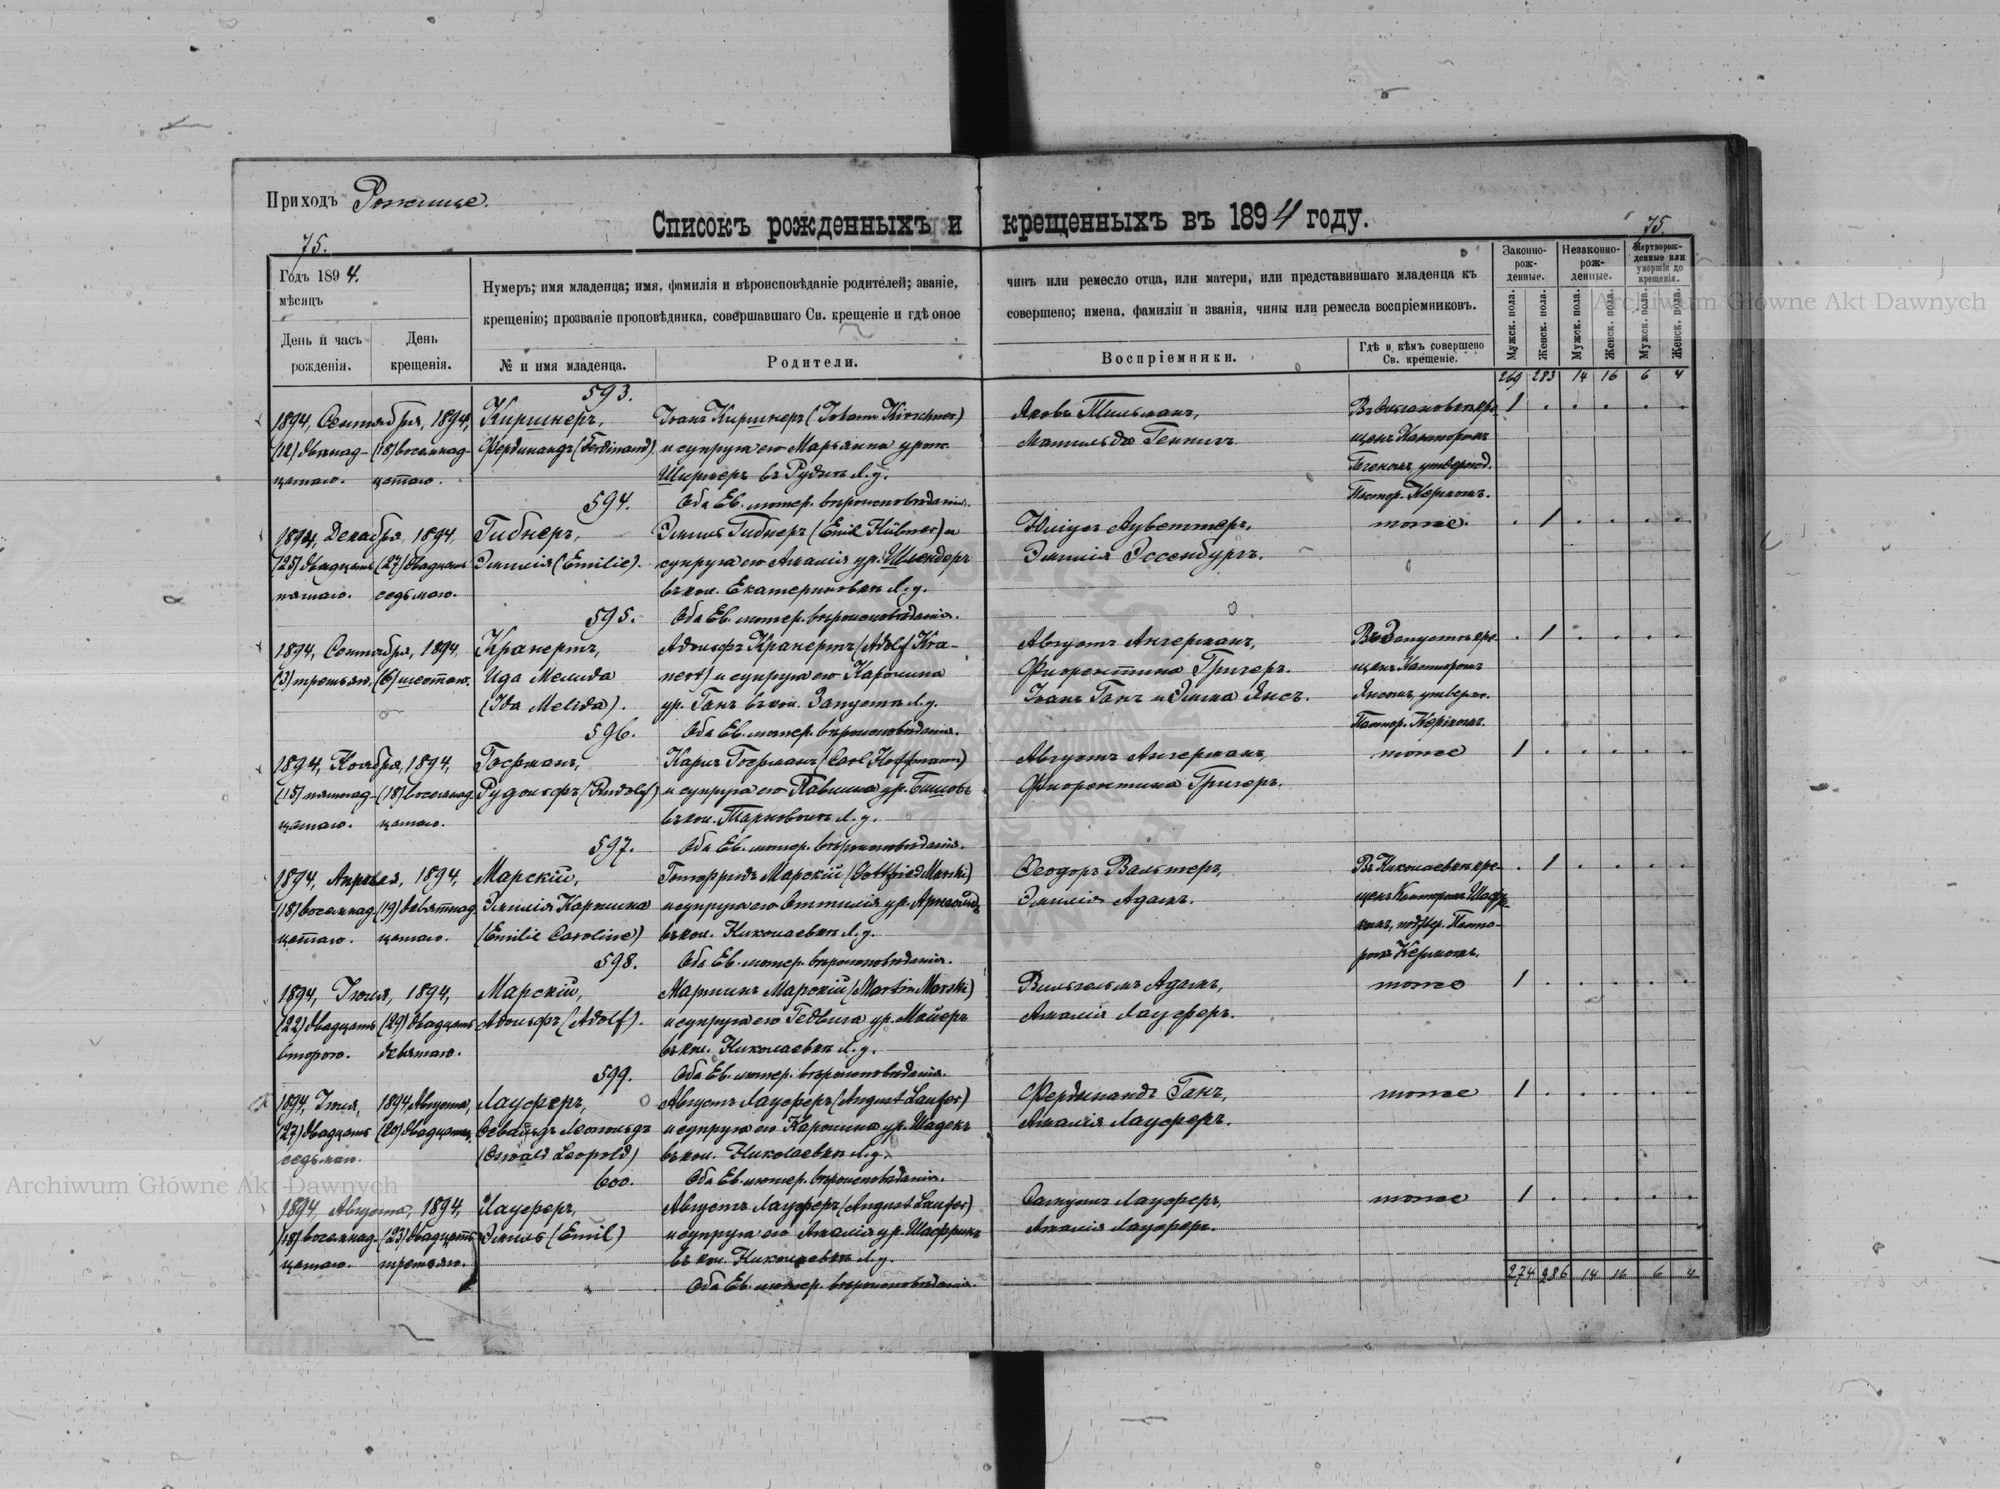 Приходъ Рожище.
Списокъ рожденныхъ и крещенныхъ въ 1894 году.
75.
75.
Годъ 1894.
мѣсяцъ
День и часъ рожденія.
День крещенія.
Нумеръ; имя младенца; имя, фамилія и вѣроисповѣданіе родителей; званіе, чинъ или ремесло отца, или матери, или представившаго младенца къ
крещенію; прозваніе проповѣдника, совершавшаго Св. крещеніе и гдѣ оное совершено; имена, фамиліи и званія, чины или ремесла воспріемниковъ.
№ и имя младенца.
Родители.
Воспріемники.
Гдѣ и кѣмъ совершено Св. крещеніе.
Законно-рож-денные.
Незаконно-рож-денные.
Мертворож-денные или умершіе до крещенія.
Мужск. пола.
Женск. пола.
Мужск. пола.
Женск. пола.
Мужск. пола.
Женск. пола.
269 283 14 16 6 4
593.
1894, Сентября, 1894,
(12) двѣнад- (18) восемнад-
цатаго. цатаго.
Киршнеръ,
Фердинандъ (Ferdinand)
Іванъ Киршнеръ (Johann Kirschner)
и супруга его Марьянна урож.
въ Рудкѣ Л. у.
Оба Ев. лютер. вѣроисповѣданія.
Яковъ Тильманъ,
Матильда
щенъ Канторомъ
утвержд.
Пастор. Керммъ.
1 . . . . .
594.
1894, Декабря, 1894,
(25) двадцать (27) двадцать
пятаго. седьмаго.
Гибнеръ,
Эмилія (Emilie).
Эмиль Гибнеръ (Emil Hübner) и
супруга его Амалія ур. Шлендеръ
въ кол. Екатериновкѣ Л. у.
Оба Ев. лютер. вѣроисповѣданія.
Эмилія Эссенбургъ.
тоже.
. 1 . . . .
595.
1894, Сентября, 1894,
(3) третьяго. (6) шестаго.
Кранертъ,
Ида Мелида
(Ida Melida).
Адольфъ Кранертъ (Adolf Kra-
nert) и супруга его Каролина
ур. Ганъ въ кол. Запустъ Л. у.
Оба Ев. лютер. вѣроисповѣданія.
Августъ Ангерманъ,
Флорентина Григеръ.
Іванъ Ганъ и Эмма Янсъ.
Въ Запустъ кре-
щенъ Канторомъ
Янсомъ, утверж.
1 . . . .
596.
1894, Ноября, 1894,
(15) пятнад- (18) восемнад-
цатаго. цатаго.
Гофманъ,
Рудольфъ (Rudolf)
Карлъ Гофманъ (Carl Hoffmann)
и супруга его Павлина ур. Бишовъ
въ кол. Тарновкѣ Л. у.
Оба Ев. лютер. вѣроисповѣданія.
Августъ Ангерманъ,
Флорентина Григеръ.
тоже
1 . . . . .
597.
1894, Апрѣля, 1894,
(18) восемнад- (19) девятнад-
цатаго. цатаго.
Марскій,
Эмилія Каролина
(Emilie Caroline)
Готфридъ Марскій (Gottfried Marski)
и супруга его Оттилія ур.
въ кол. Николаевкѣ Л. у.
Оба Ев. лютер. вѣроисповѣданія.
Феодоръ Вальтеръ,
Эмилія Адамъ.
Въ Николаевкѣ кре-
щенъ Канторомъ
Пасто-
ромъ
. 1 . . . .
598.
1894, Іюля, 1894,
(22) двадцать (29) двадцать
втораго. девятаго.
Марскій,
Адольфъ (Adolf).
Мартинъ Марскій (Martin Marski)
и супруга его Гедвига ур. Майеръ
въ кол. Николаевкѣ Л. у.
Оба Ев. лютер. вѣроисповѣданія.
Вильгельмъ Адамъ,
Амалія Лауферъ.
тоже
1 . . . . .
599.
1894, Іюля, 1894, Августа,
(27) двадцать (20) двадцать,
седьмаго.
Лауферъ,
Освальдъ Леопольдъ
(Oswald Leopold)
Августъ Лауферъ (August Laufer)
и супруга его Каролина ур. Шадекъ
въ кол. Николаевкѣ Л. у.
Оба Ев. лютер. вѣроисповѣданія.
Фердинандъ Ганъ,
Амалія Лауферъ.
тоже
1 . . . . .
600.
1894 Августа, 1894,
(18) восемнад- (23) двадцать
цатаго. третьяго.
Лауферъ,
Эмиль (Emil)
Августъ Лауферъ (August Laufer)
и супруга его Амалія ур.
въ кол. Николаевкѣ Л. у.
Оба Ев. лютер. вѣроисповѣданія.
Самуилъ Лауферъ,
Амалія Лауферъ.
тоже
1 . . . . .
274 286 14 16 6 4
Archiwum Główne Akt Dawnych
Archiwum Główne Akt Dawnych